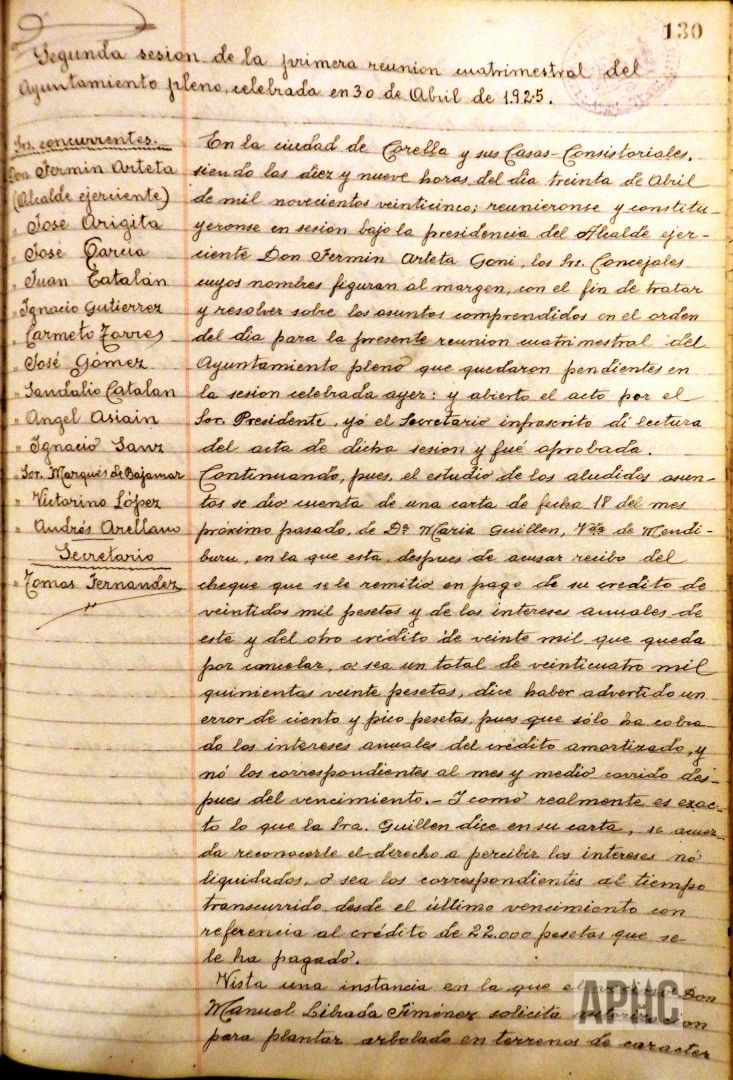 130
Segunda sesion de la primera reunion cuatrimestral del
Ayuntamiento pleno, celebrada en 30 de Abril de 1.925.
Srs. concurrentes.
Don Fermin Arteta
(Alcalde ejerciente)
" José Arigita
" José Garcia
" Juan Catalán
" Ignacio Gutierrez
" Carmelo Torres
" José Gómez
" Sandalio Catalan
" Angel Asiain
" Ignacio Sanz
" Sor. Marqués de Bajamar
" Victorino López
" Andrés Arellano
Secretario
" Tomas Fernandez
"
En la ciudad de Corella y sus Casas-Consistoriales,
siendo las diez y nueve horas del dia treinta de Abril
de mil novecientos veinticinco; reunieronse y constitu-
yeronse en sesion bajo la presidencia del Alcalde ejer-
ciente Don Fermin Arteta Goni, los Srs. Concejales
cuyos nombres figuran al margen, con el fin de tratar
y resolver sobre los asuntos comprendidos en el orden
del dia para la presente reunion cuatrimestral del
Ayuntamiento pleno que quedaron pendientes en
la sesion celebrada ayer: y abierto el acto por el
Sor. Presidente, yó el Secretario infrascrito di lectura
del acta de dicha sesion y fué aprobada.
Continuando, pues, el estudio de los aludidos asun-
tos se dio cuenta de una carta de fecha 18 del mes
próximo pasado, de Dª Maria Guillen, Vda de Mendi-
buru, en la que esta, despues de acusar recibo del
cheque que se le remitio en pago de su credito de
veintidos mil pesetas y de los intereses anuales de
este y del otro crédito de veinte mil que queda
por cancelar, o sea un total de veinticuatro mil
quinientas veinte pesetas, dice haber advertido un
error de ciento y pico pesetas, pues que sólo ha cobra-
do los intereses anuales del crédito amortizado, y
nó los correspondientes al mes y medio corrido des-
pues del vencimiento.- I como realmente es exac-
to lo que la Sra. Guillen dice en su carta, se acuer-
da reconocerle el derecho a percibir los intereses nó
liquidados, o sea los correspondientes al tiempo
transcurrido desde el último vencimiento con
referencia al crédito de 22.000 pesetas que se
le ha pagado.
Vista una instancia en la que el Don
Manuel Librada Jiménez solicita autorizacion
para plantar arbolado en terrenos de caracter
APHC